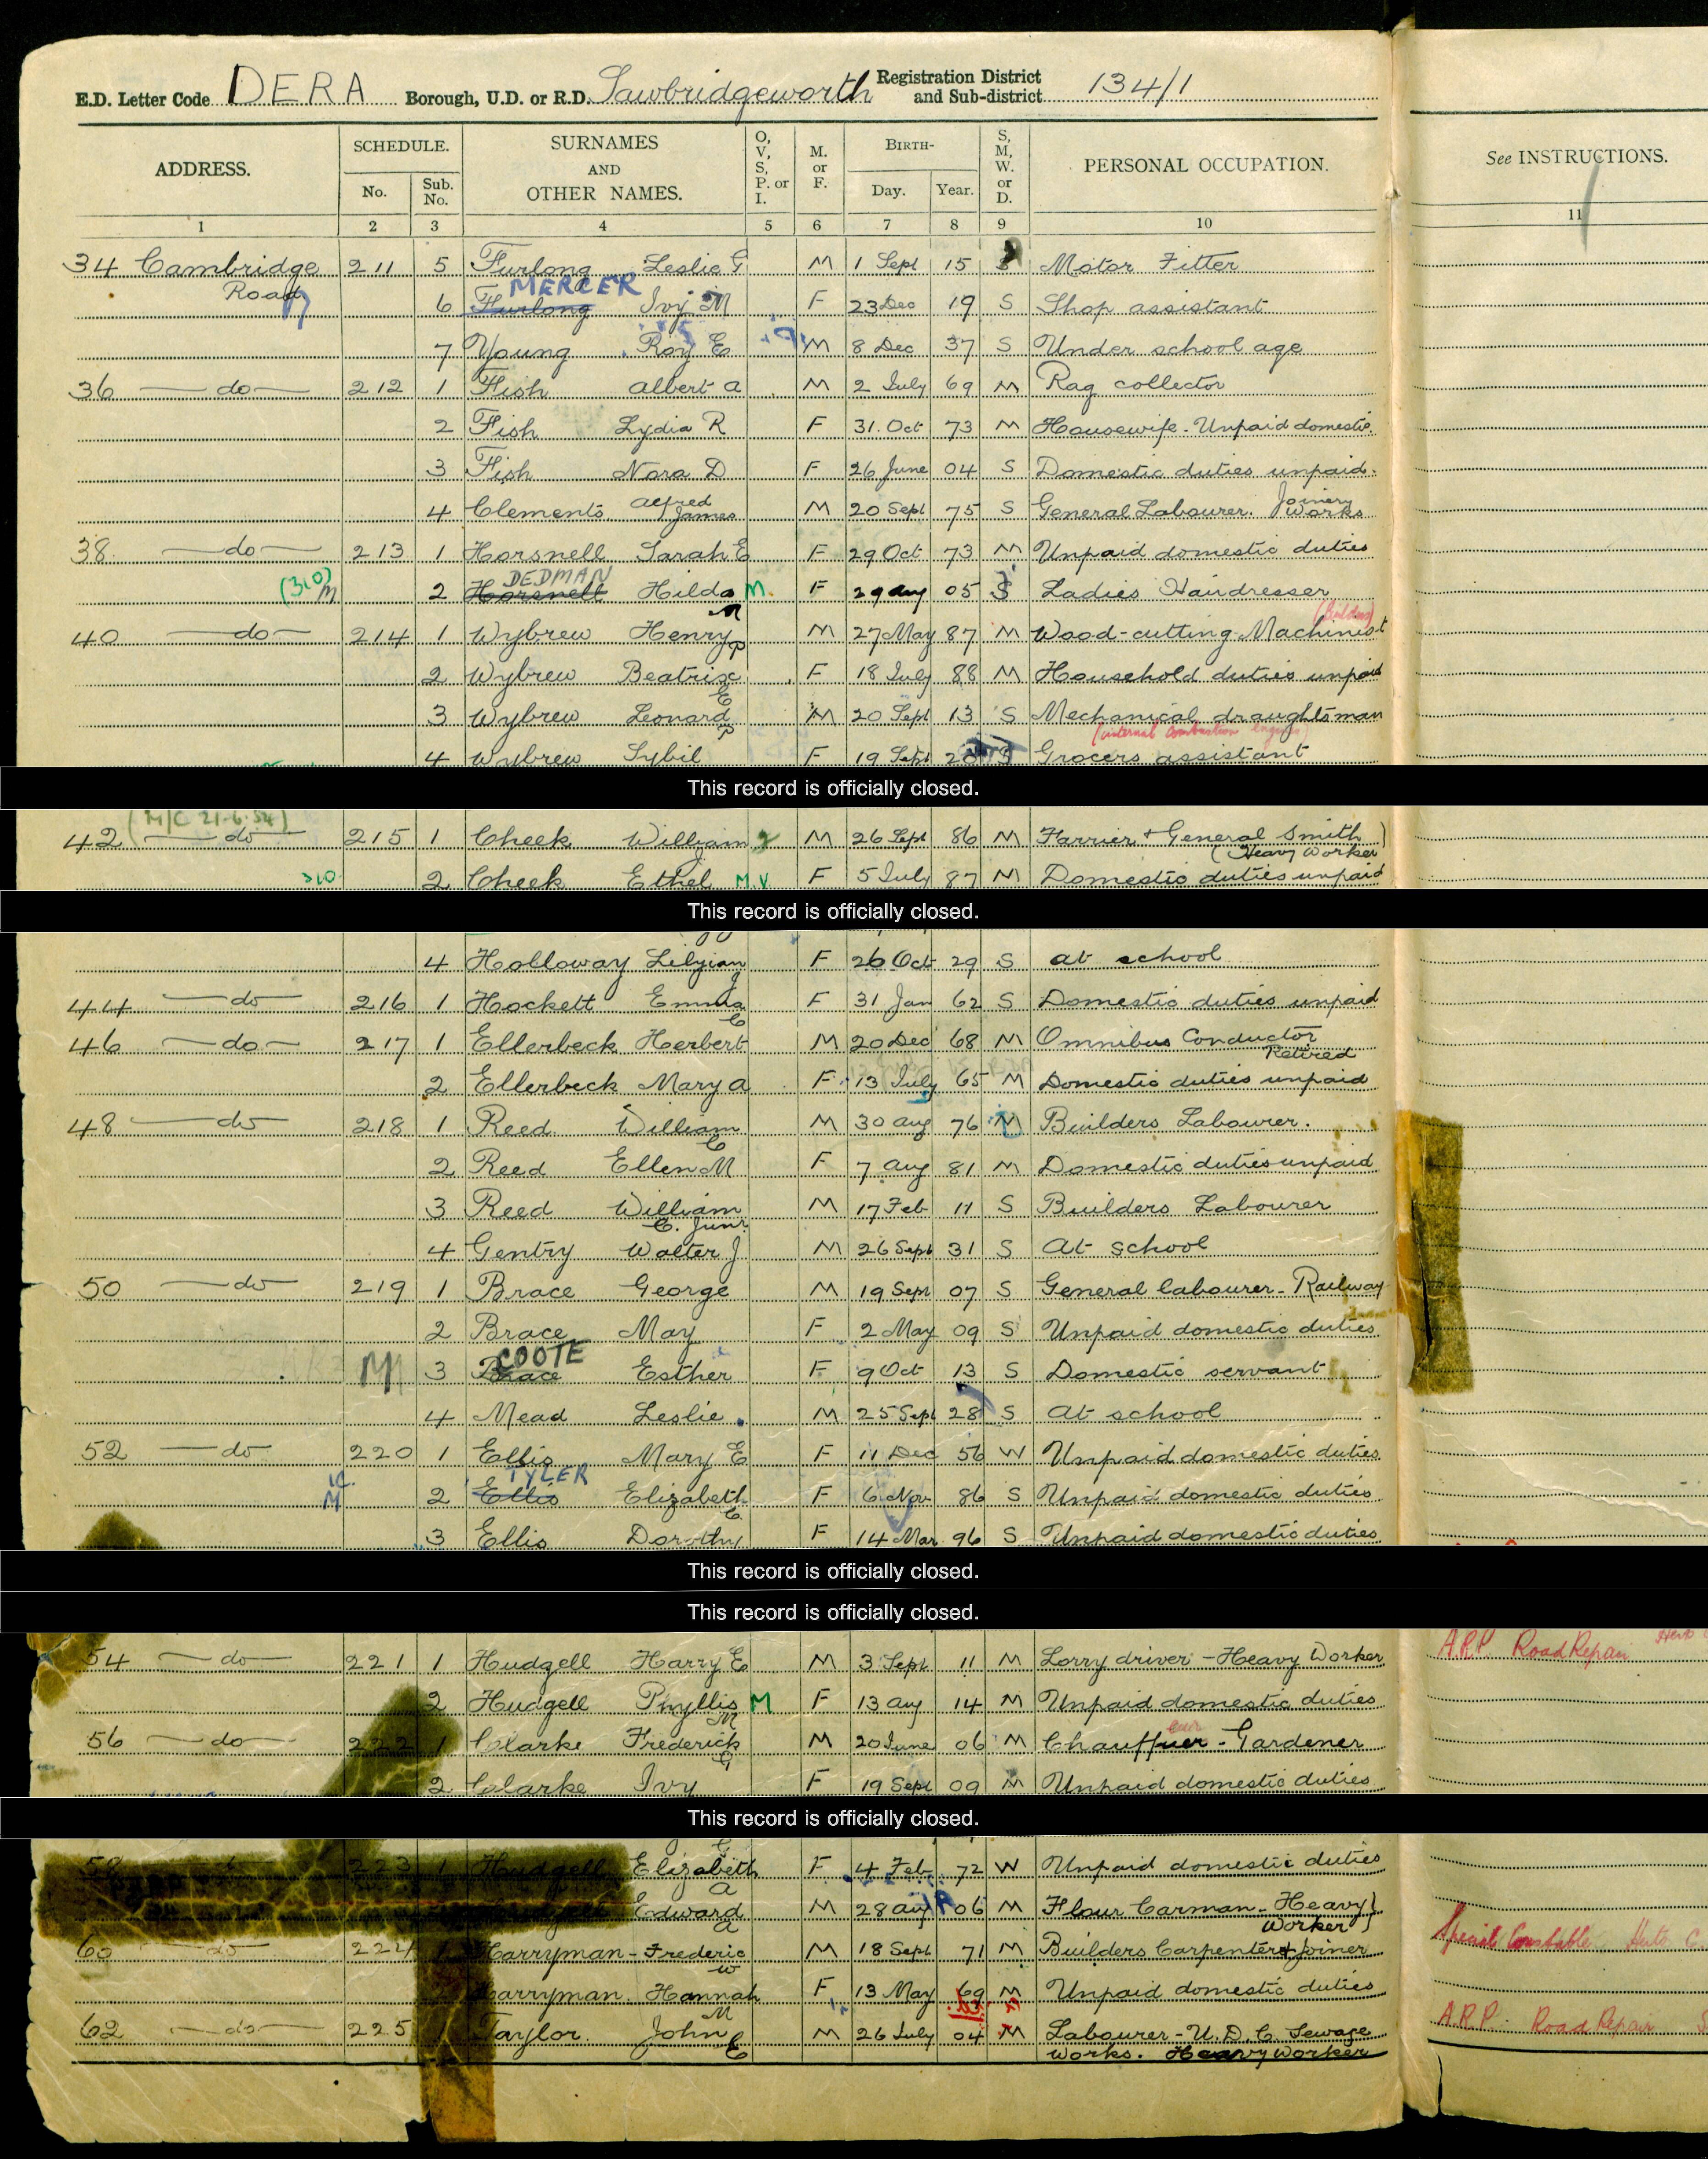 E.D. Letter Code DERA Borough, U.D. or R.D. Sawbridgeworth Registration District and Sub-district 134/1
ADDRESS. SCHEDULE. No. Sub. No. SURNAMES AND OTHER NAMES. O, V, S, P. or I. M. or F. BIRTH- Day. Year. S, M, W. or D. PERSONAL OCCUPATION. See INSTRUCTIONS.
1 2 3 4 5 6 7 8 9 10 11
34 Cambridge Road 211 5 Furlong Leslie G M 1 Sept 15 S Motor Fitter
6 Furlong MERCER Ivy M F 23 Dec 19 S Shop assistant
7 Young Roy E M 8 Dec 37 S Under school age
36 — do — 212 1 Fish Albert A M 2 July 69 M Rag collector
2 Fish Lydia R F 31. Oct 73 M Housewife - Unpaid domestic.
3 Fish Nora D F 26 June 04 S Domestic duties unpaid.
4 Clements Alfred James M 20 Sept 75 S General Labourer. Joinery Works
38 — do — 213 1 Horsnell Sarah E F 29 Oct 73 M Unpaid domestic duties
(310) M 2 Horsnell DEDMAN Hilda M M. F 29 Aug 05 S Ladies Hairdresser
40 — do — 214 1 Wybrew Henry P M 27 May 87 M Wood-cutting Machinist (Building)
2 Wybrew Beatrix E F 18 July 88 M Household duties unpaid
3 Wybrew Leonard P M 20 Sept 13 S Mechanical draughtsman (internal combustion engines)
4 Wybrew Sybil F 19 Sept 20 S Grocers assistant
This record is officially closed.
(M/C 21.6.54)
42 — do — 215 1 Cheek William J M 26 Sept 86 M Farrier + General Smith (Heavy Worker)
310 2 Cheek Ethel M.V F 5 July 87 M Domestic duties unpaid
This record is officially closed.
4 Holloway Lilyian J F 26 Oct 29 S At school
44 — do — 216 1 Hockett Emma C F 31 Jan 62 S Domestic duties unpaid
46 — do — 217 1 Ellerbeck Herbert M 20 Dec 68 M Omnibus Conductor Retired
2 Ellerbeck Mary A F 13 July 65 M Domestic duties unpaid
48 — do — 218 1 Reed William C M 30 Aug 76 M Builders Labourer.
2 Reed Ellen M F 7 Aug 81 M Domestic duties unpaid
3 Reed William C. Junr. M 17 Feb 11 S Builders Labourer
4 Gentry Walter J M 26 Sept 31 S At school
50 — do — 219 1 Brace George M 19 Sept 07 S General labourer - Railway
2 Brace May F 2 May 09 S Unpaid domestic duties
M 3 Brace COOTE Esther F 9 Oct 13 S Domestic servant
4 Mead Leslie. M 25 Sept 28 S At school
52 — do — 220 1 Ellis Mary E F 11 Dec 56 W Unpaid domestic duties
2 Ellis TYLER Elizabeth C. F 6 Nov 86 S Unpaid domestic duties
3 Ellis Dorothy F 14 Mar 96 S Unpaid domestic duties
This record is officially closed.
This record is officially closed.
54 — do — 221 1 Hudgell Harry E M 3 Sept 11 M Lorry driver - Heavy Worker A.R.P. Road Repair
2 Hudgell Phyllis M M F 13 Aug 14 M Unpaid domestic duties
56 — do — 222 1 Clarke Frederick G M 20 June 06 M Chauffuer eur - Gardener
2 Clarke Ivy F 19 Sept 09 M Unpaid domestic duties
This record is officially closed.
58 223 1 Hudgell Elizabeth A F 4 Feb 72 W Unpaid domestic duties
Edward A M 28 Aug 06 M Flour Carman - Heavy Worker
60 — do — 224 Harryman - Frederic W M 18 Sept 71 M Builders Carpenter & Joiner Special Constable
Harryman. Hannah M F 13 May 69 M Unpaid domestic duties
62 — do — 225 Taylor. John E M 26 July 04 M Labourer - U.D.C. Sewage Works. Heavy worker A.R.P. Road Repair